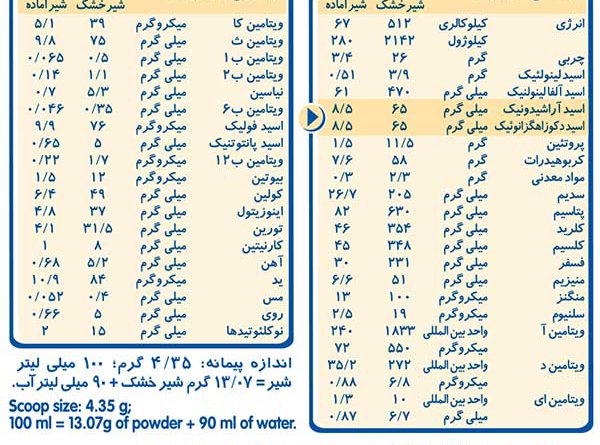 شیرخشک شیرآماده
انرژی کیلوکالری ۵۱۲ ۶۷
کیلوژول ۲۱۴۲ ۲۸۰
چربی گرم ۲۶ ۳/۴
اسیدلینولئیک گرم ۳/۹ ۰/۵۱
اسید آلفالینولنیک میلی گرم ۴۷۰ ۶۱
اسید آراشیدونیک میلی گرم ۶۵ ۸/۵
اسیددکوزاهگزانوئیک میلی گرم ۶۵ ۸/۵
پروتئین گرم ۱۱/۵ ۱/۵
کربوهیدرات گرم ۵۸ ۷/۶
مواد معدنی گرم ۲/۳ ۰/۳
سدیم میلی گرم ۲۰۵ ۲۶/۷
پتاسیم میلی گرم ۶۳۰ ۸۲
کلرید میلی گرم ۳۵۴ ۴۶
کلسیم میلی گرم ۳۴۸ ۴۵
فسفر میلی گرم ۲۳۱ ۳۰
منیزیم میلی گرم ۵۱ ۶/۶
منگنز میکروگرم ۱۰۰ ۱۳
سلنیوم میکروگرم ۲/۵ ۱۹
ویتامین آ واحد بین المللی ۱۸۳۳ ۲۴۰
میکروگرم ۵۵۰ ۷۲
ویتامین د واحد بین المللی ۲۷۲ ۳۵/۲
میکروگرم ۶/۸ ۰/۸۸
ویتامین ای واحد بین المللی ۱۰ ۱/۳
میلی گرم ۶/۷ ۰/۸۷
شیرخشک شیرآماده
ویتامین کا میکروگرم ۳۹ ۵/۱
ویتامین ث میلی گرم ۷۵ ۹/۸
ویتامین ب۱ میلی گرم ۰/۵ ۰/۰۶۵
ویتامین ب۲ میلی گرم ۱/۱ ۰/۱۴
نیاسین میلی گرم ۵/۳ ۰/۷
ویتامین ب۶ میلی گرم ۰/۳۵ ۰/۰۴۶
اسید فولیک میکروگرم ۷۶ ۹/۹
اسید پانتوتنیک میلی گرم ۵ ۰/۶۵
ویتامین ب۱۲ میکروگرم ۱/۷ ۰/۲۲
بیوتین میکروگرم ۱۲ ۱/۵
کولین میلی گرم ۴۹ ۶/۴
اینوزیتول میلی گرم ۳۷ ۴/۸
تورین میلی گرم ۳۱/۵ ۴/۱
کارنیتین میلی گرم ۸ ۱
آهن میلی گرم ۵/۲ ۰/۶۸
ید میکروگرم ۸۴ ۱۰/۹
مس میلی گرم ۰/۴ ۰/۰۵۲
روی میلی گرم ۵ ۰/۶۶
نوکلئوتیدها میلی گرم ۱۵ ۲
اندازه پیمانه: ۴/۳۵ گرم؛ ۱۰۰ میلی لیتر
شیر = ۱۳/۰۷ گرم شیر خشک + ۹۰ میلی لیتر آب.
Scoop size: 4.35 g;
100 ml = 13.07g of powder + 90 ml of water.